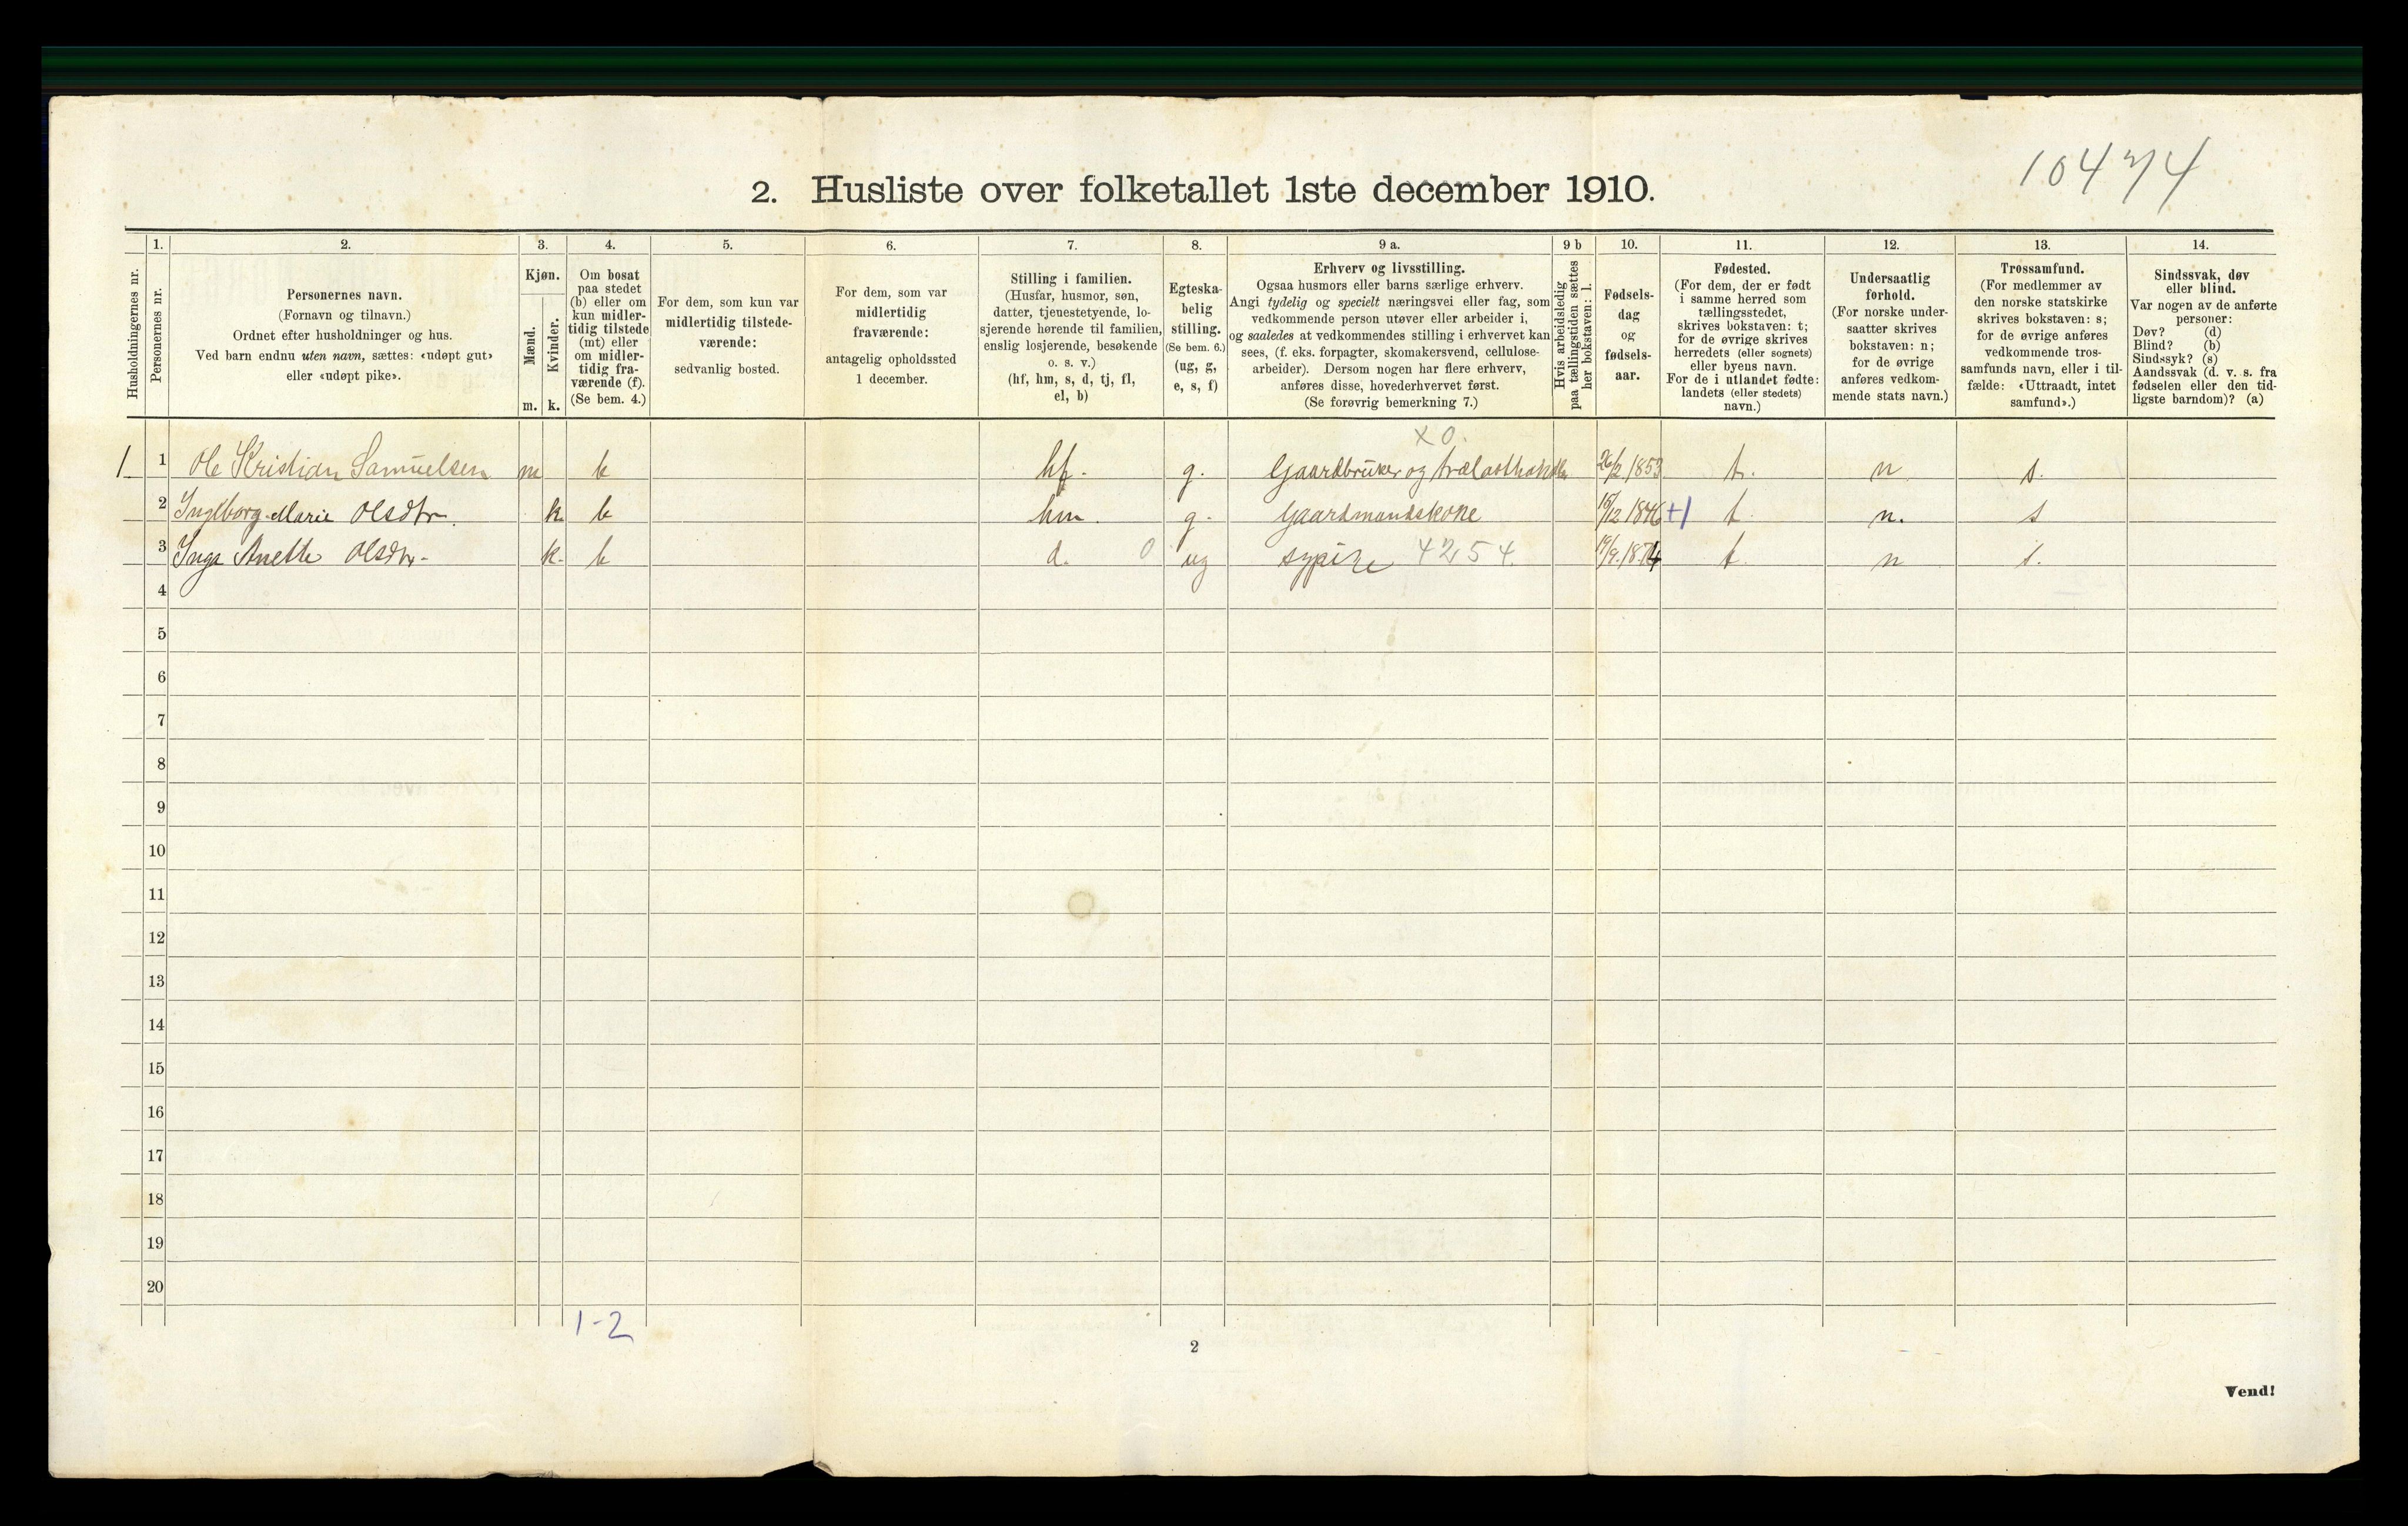 10474
2. Husliste over folketallet 1ste december 1910.
Husholdningernes nr.
1.
Personernes nr.
2.
Personernes navn.
(Fornavn og tilnavn.)
Ordnet efter husholdninger og hus.
Ved barn endnu uten navn, sættes: «udøpt gut»
eller «udøpt pike».
3.
Kjøn.
Mænd.
Kvinder.
m. k.
4.
Om bosat
paa stedet
(b) eller om
kun midler-
tidig tilstede
(mt) eller
om midler-
tidig fra-
værende (f).
(Se bem. 4.)
5.
For dem, som kun var
midlertidig tilstede-
værende:
sedvanlig bosted.
6.
For dem, som var
midlertidig
fraværende:
antagelig opholdssted
1 december.
7.
Stilling i familien.
(Husfar, husmor, søn,
datter, tjenestetyende, lo-
sjerende hørende til familien,
enslig losjerende, besøkende
o. s. v.)
(hf, hm, s, d, tj, fl,
el, b)
8.
Egteska-
belig
stilling.
(Se bem. 6.)
(ug, g,
e, s, f)
9 a.
Erhverv og livsstilling.
Ogsaa husmors eller barns særlige erhverv.
Angi tydelig og specielt næringsvei eller fag, som
vedkommende person utøver eller arbeider i,
og saaledes at vedkommendes stilling i erhvervet kan
sees, (f. eks. forpagter, skomakersvend, cellulose-
arbeider). Dersom nogen har flere erhverv,
anføres disse, hovederhvervet først.
(Se forøvrig bemerkning 7.)
9 b
Hvis arbeidsledig
paa tællingstiden sættes
her bokstaven: l.
10.
Fødsels-
dag
og
fødsels-
aar.
11.
Fødested.
(For dem, der er født
i samme herred som
tællingsstedet,
skrives bokstaven: t;
for de øvrige skrives
herredets (eller sognets)
eller byens navn.
For de i utlandet fødte:
landets (eller stedets)
navn.)
12.
Undersaatlig
forhold.
(For norske under-
saatter skrives
bokstaven: n;
for de øvrige
anføres vedkom-
mende stats navn.)
13.
Trossamfund.
(For medlemmer av
den norske statskirke
skrives bokstaven: s;
for de øvrige anføres
vedkommende tros-
samfunds navn, eller i til-
fælde: «Uttraadt, intet
samfund».)
14.
Sindssvak, døv
eller blind.
Var nogen av de anførte
personer:
Døv? (d)
Blind? (b)
Sindssyk? (s)
Aandssvak (d. v. s. fra
fødselen eller den tid-
ligste barndom)? (a)
X 0.
1 1 Ole Kristian Samuelsen m b hf. g. Gaardbruker og trælasthandler 26/2 1853 t. n s.
2 Ingeborg Marie Olsdtr. k b hm. g. Gaardmandskone 15/12 1846 +1 t. n. s
3 Inga Anette Olsdtr. k. b d. 0 ug sypike 4254. 19/9. 1874 t. n s.
4
5
6
7
8
9
10
11
12
13
14
15
16
17
18
19
20
1-2
2
Vend!